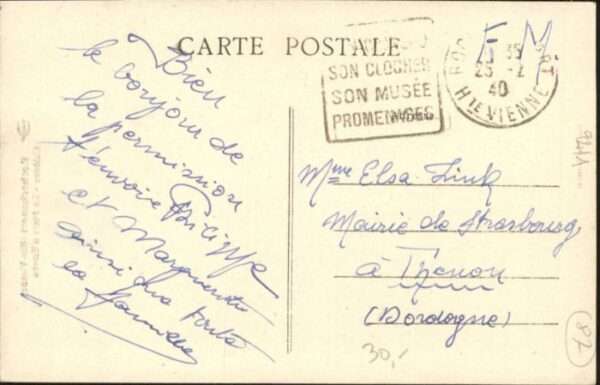 CARTE POSTALE
SON CLOCHER
SON MUSÉE
PROMENADES
F.M
35
25 -2
40
HTE VIENNE
Bien
le bonjour de
la permission
t'envoie Philippe
et Marguerite
ainsi que toute
la famille
Mme Elsa Zink
Mairie de Strasbourg
à Thenon
(Dordogne)
30,-
87